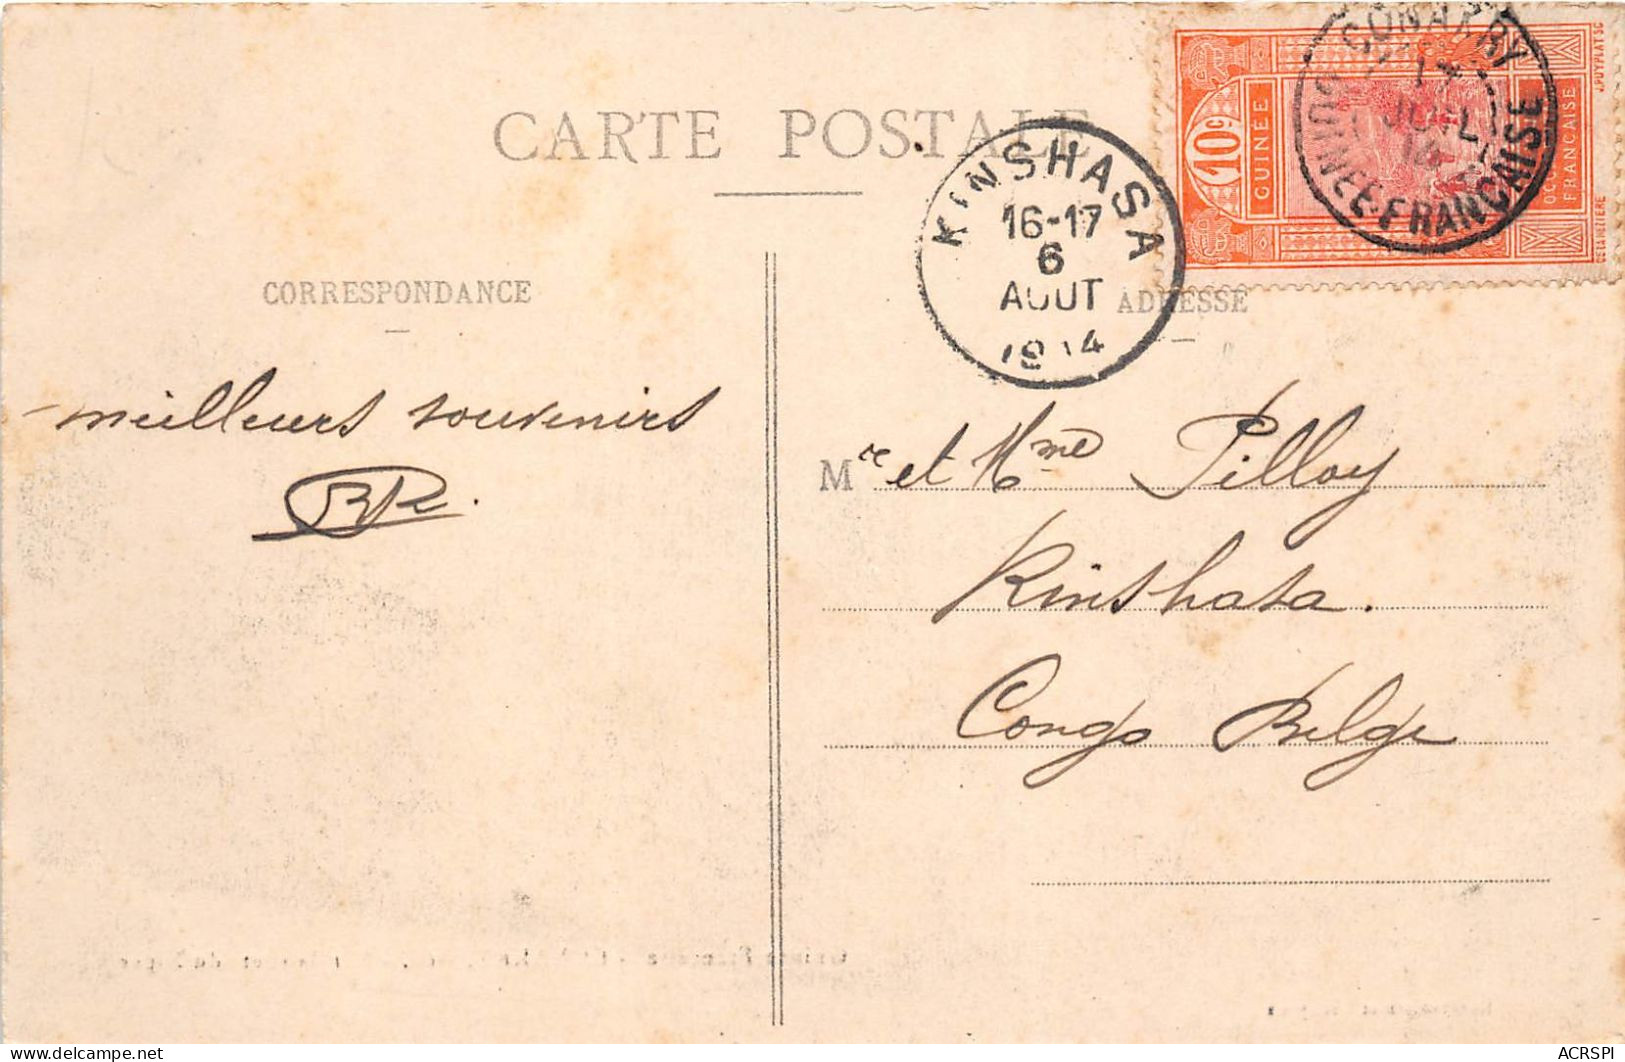 CARTE POSTALE
CORRESPONDANCE
ADRESSE
KINSHASA
16-17
6
AOUT
1914
10c
GUINÉE
OCCIDLE
FRANÇAISE
J.PUYPLAT SC
DE LA NEZIERE
CONAKRY
17
JUIL
14
GUINÉE-FRANÇAISE
meilleurs souvenirs
BR.
Mr et Mme Pilloy
Kinshasa.
Congo Belge
ACRSPI